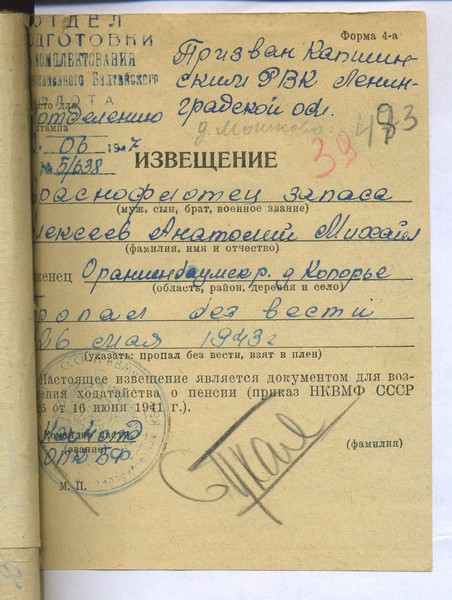 ОТДЕЛ
ПОДГОТОВКИ
КОМПЛЕКТОВАНИЯ
Балтийского
ФЛОТА
Форма 4-а
Призван Капшин-
ским РВК Ленин-
градской обл.
д. Мошково
место для
отделению
штампа
06 1947
№ 5/638
39
483
ИЗВЕЩЕНИЕ
раснофлотец запаса
(муж, сын, брат, военное звание)
лексеев Анатолий Михайл
(фамилия, имя и отчество)
женец Ораниенбаумск р. д Копорье
(область, район, деревня и село)
ропал без вести
26 мая 1943 г
(указать: пропал без вести, взят в плен)
Настоящее извещение является документом для воз-
дения ходатайства о пенсии (приказ НКВМФ СССР
5 от 16 июня 1941 г.).
(звание)
(фамилия)
М. П.